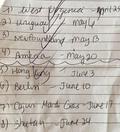 1) West Urgence - April 25
2) Uruguay - May 4
3) Newfoundland - May 13
4) Angola - May 20
5) Hong Kong - June 3
6) Berlin - June 10
7) Cajun Mardi Gras - June 17
8) Shetain - June 24